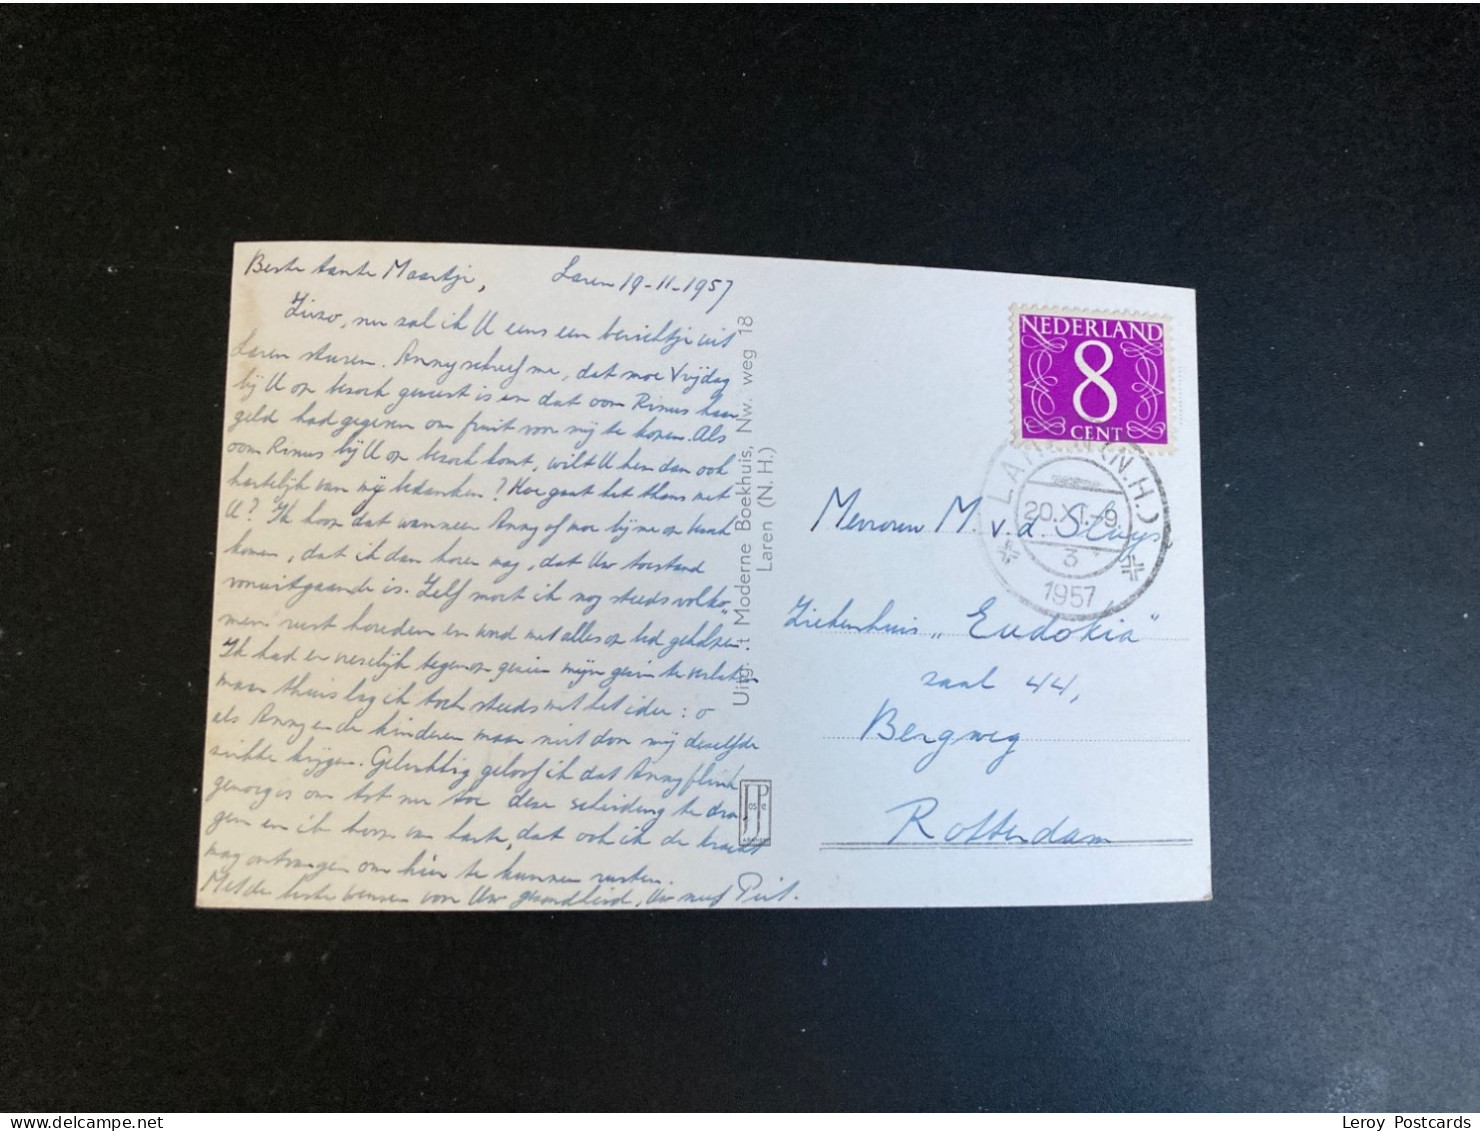 Beste tante Maartje,
Laren 19-11-1957
Zizo, nu zal ik U eens een berichtje uit
Laren sturen. Anny schreef me, dat moe Vrijdag
bij U op bezoek geweest is en dat oom Rinus haar
geld had gegeven om fruit voor mij te kopen. Als
oom Rinus bij U op bezoek komt, wilt U hem dan ook
hartelijk van mij bedanken? Hoe gaat het thans met
U? Ik hoop dat wanneer Anny of moe bij me op bezoek
komen, dat ik dan horen mag, dat Uw toestand
vooruitgaande is. Zelf moet ik nog steeds volko-
men rust houden en word met alles op bed geholpen.
Ik had er vreselijk tegenop gezien mijn gezin te verlaten
maar thuis lag ik toch steeds met het idee: o
als Anny en de kinderen maar niet door mij dezelfde
ziekte krijgen. Gelukkig geloof ik dat Anny flink
genoeg is om tot nu toe deze scheiding te dra-
gen en ik hoop van harte, dat ook ik de kracht
mag ontvangen om hier te kunnen rusten.
Met de beste wensen voor Uw gezondheid, Uw neef Piet.
Uitg. 't Moderne Boekhuis, Nw. weg 18
Laren (N.H.)
JosPe
ARNHEM
NEDERLAND
8
CENT
LAREN (N.H.)
20.XI.-9
3
1957
Mevrouw M. v.d. Sluys
Ziekenhuis „Eudokia"
zaal 44,
Bergweg
Rotterdam
Leroy Postcards